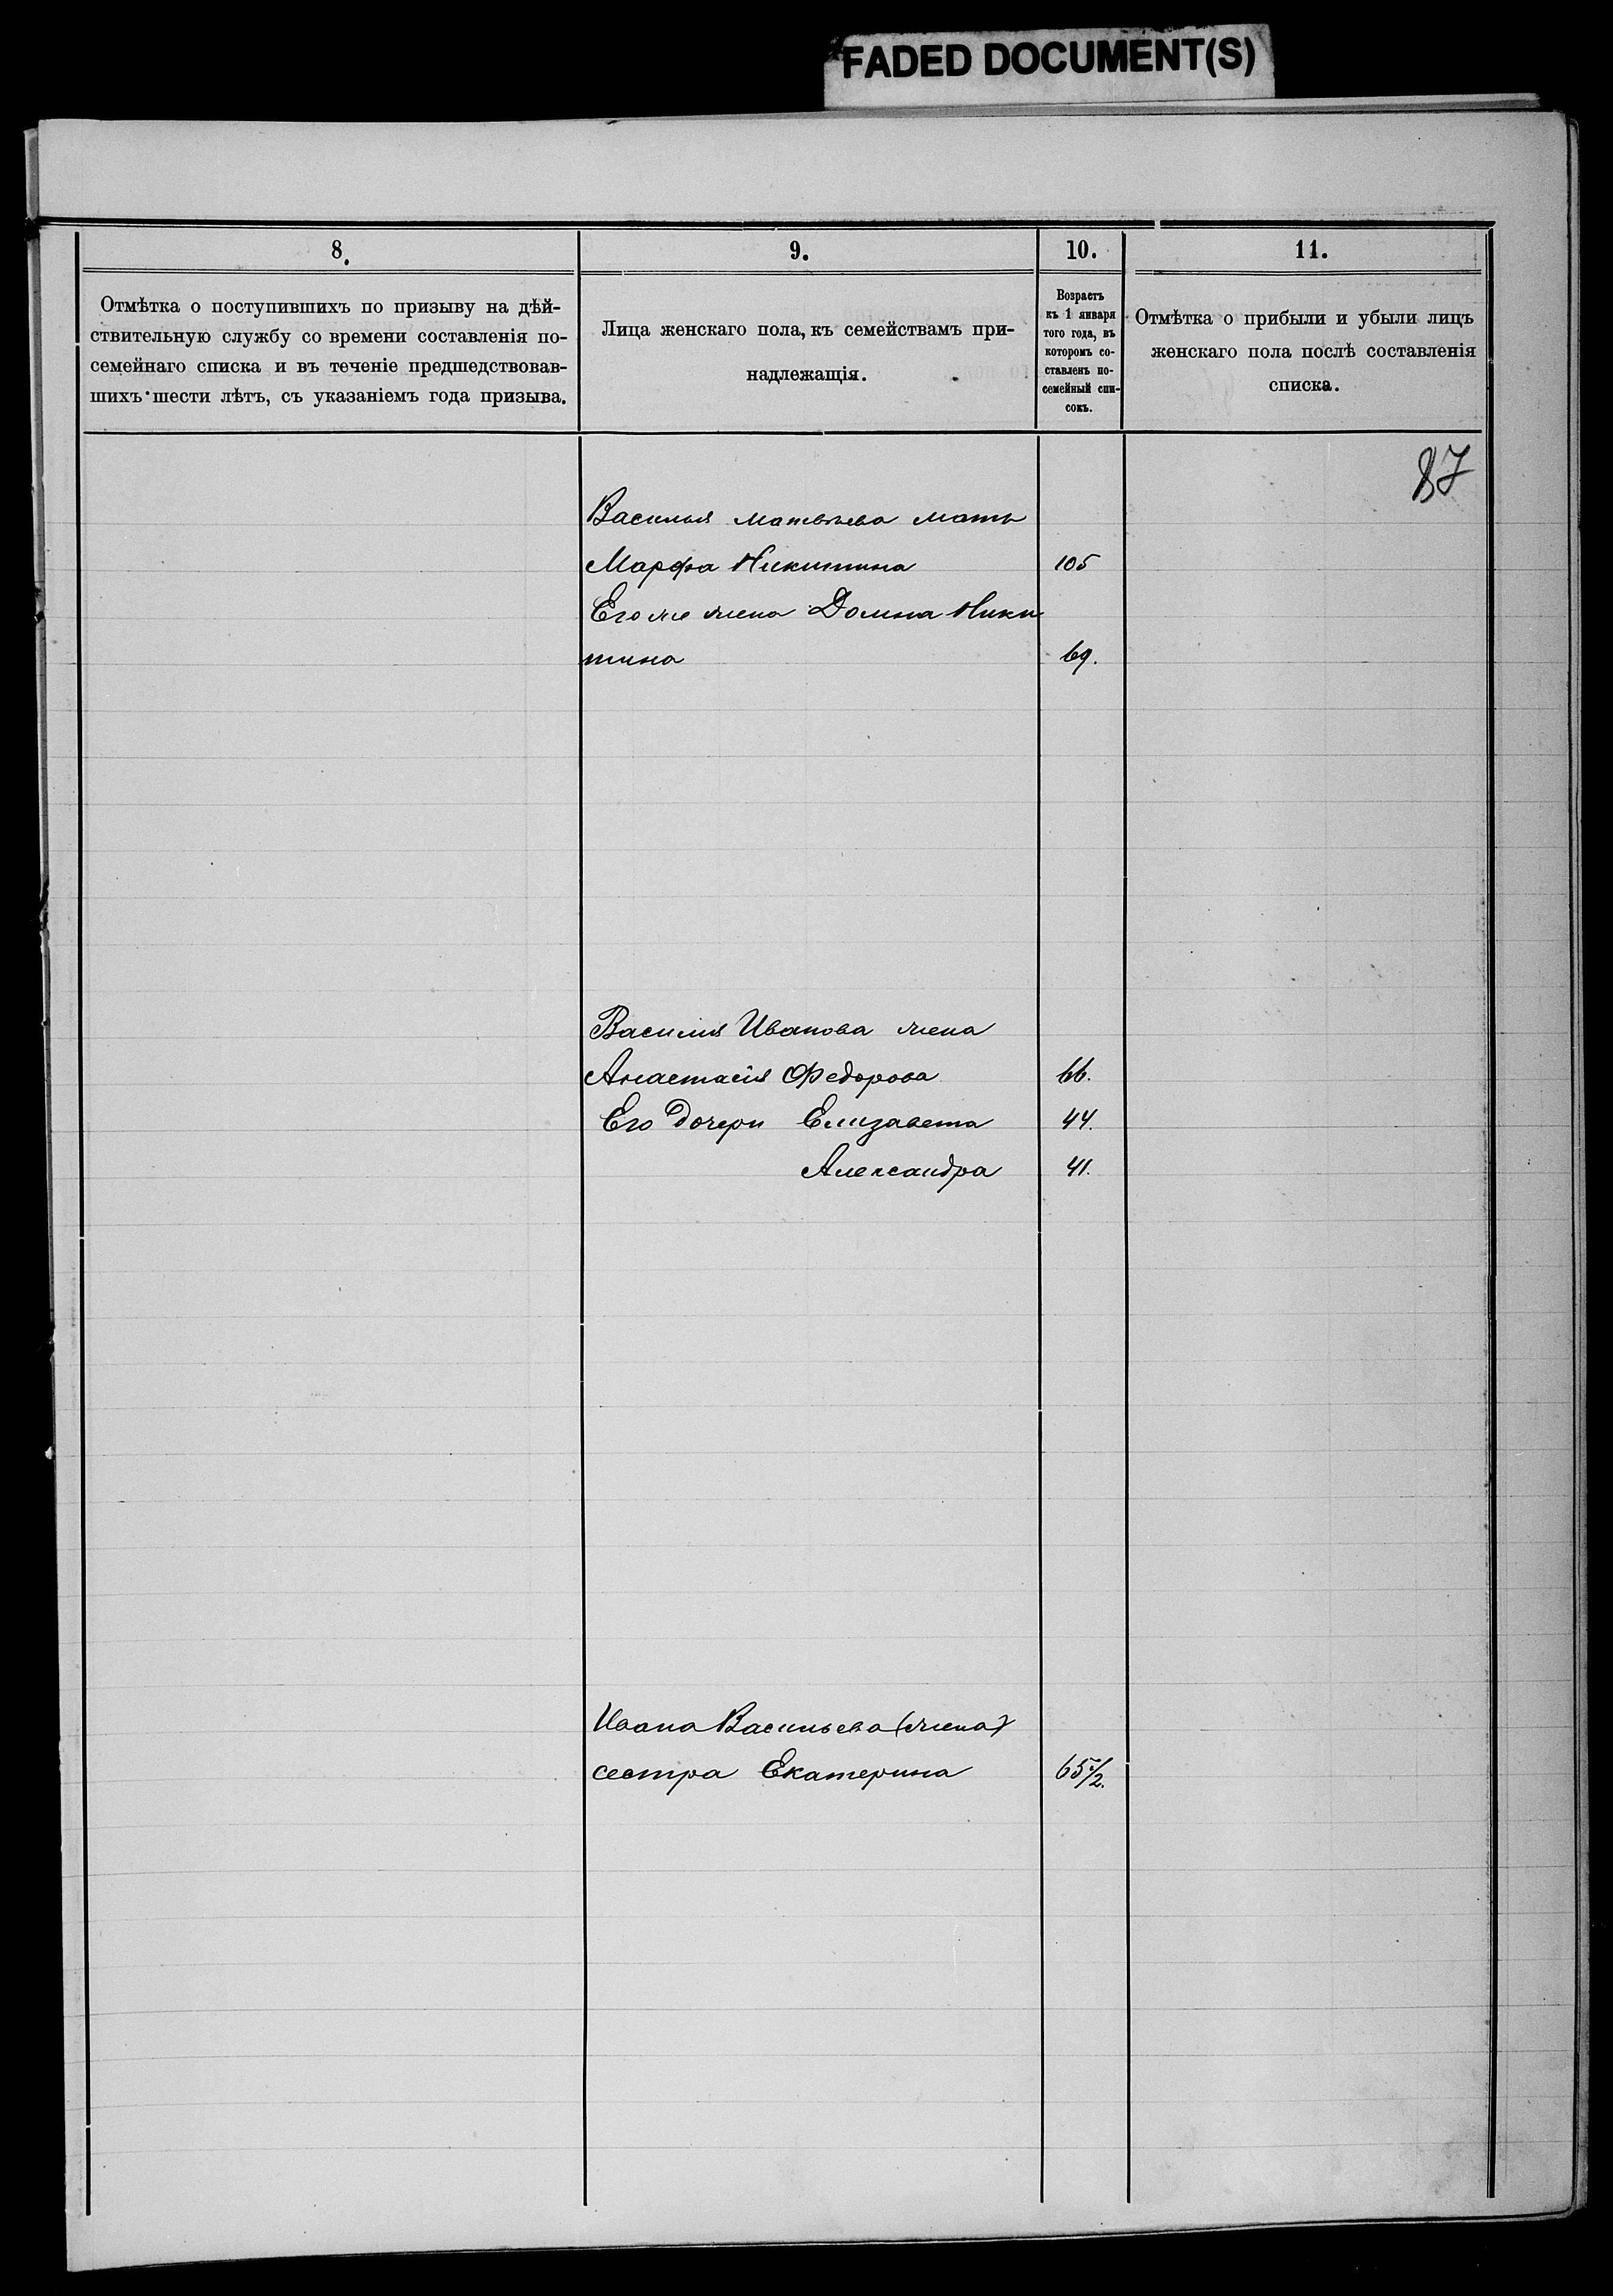 FADED DOCUMENT(S)
8.
9.
10.
11.
Отмѣтка о поступившихъ по призыву на дѣй-
ствительную службу со времени составленія по-
семейнаго списка и въ теченіе предшедствовав-
шихъ шести лѣтъ, съ указаніемъ года призыва.
Лица женскаго пола, къ семействамъ при-
надлежащія.
Возрастъ
къ 1 января
того года, въ
которомъ со-
ставленъ по-
семейный спи-
сокъ.
Отмѣтка о прибыли и убыли лицъ
женскаго пола послѣ составленія
списка.
87
Василья Матвѣева мать
Марфа Никитина 105
Его же жена Домна Ники
тина 69.
Василия Иванова жена
Анастасія Федорова 66.
Его дочери Елизавета 44.
Александра 41.
Ивана Васильева (жена)
сестра Екатерина 65 1/2.